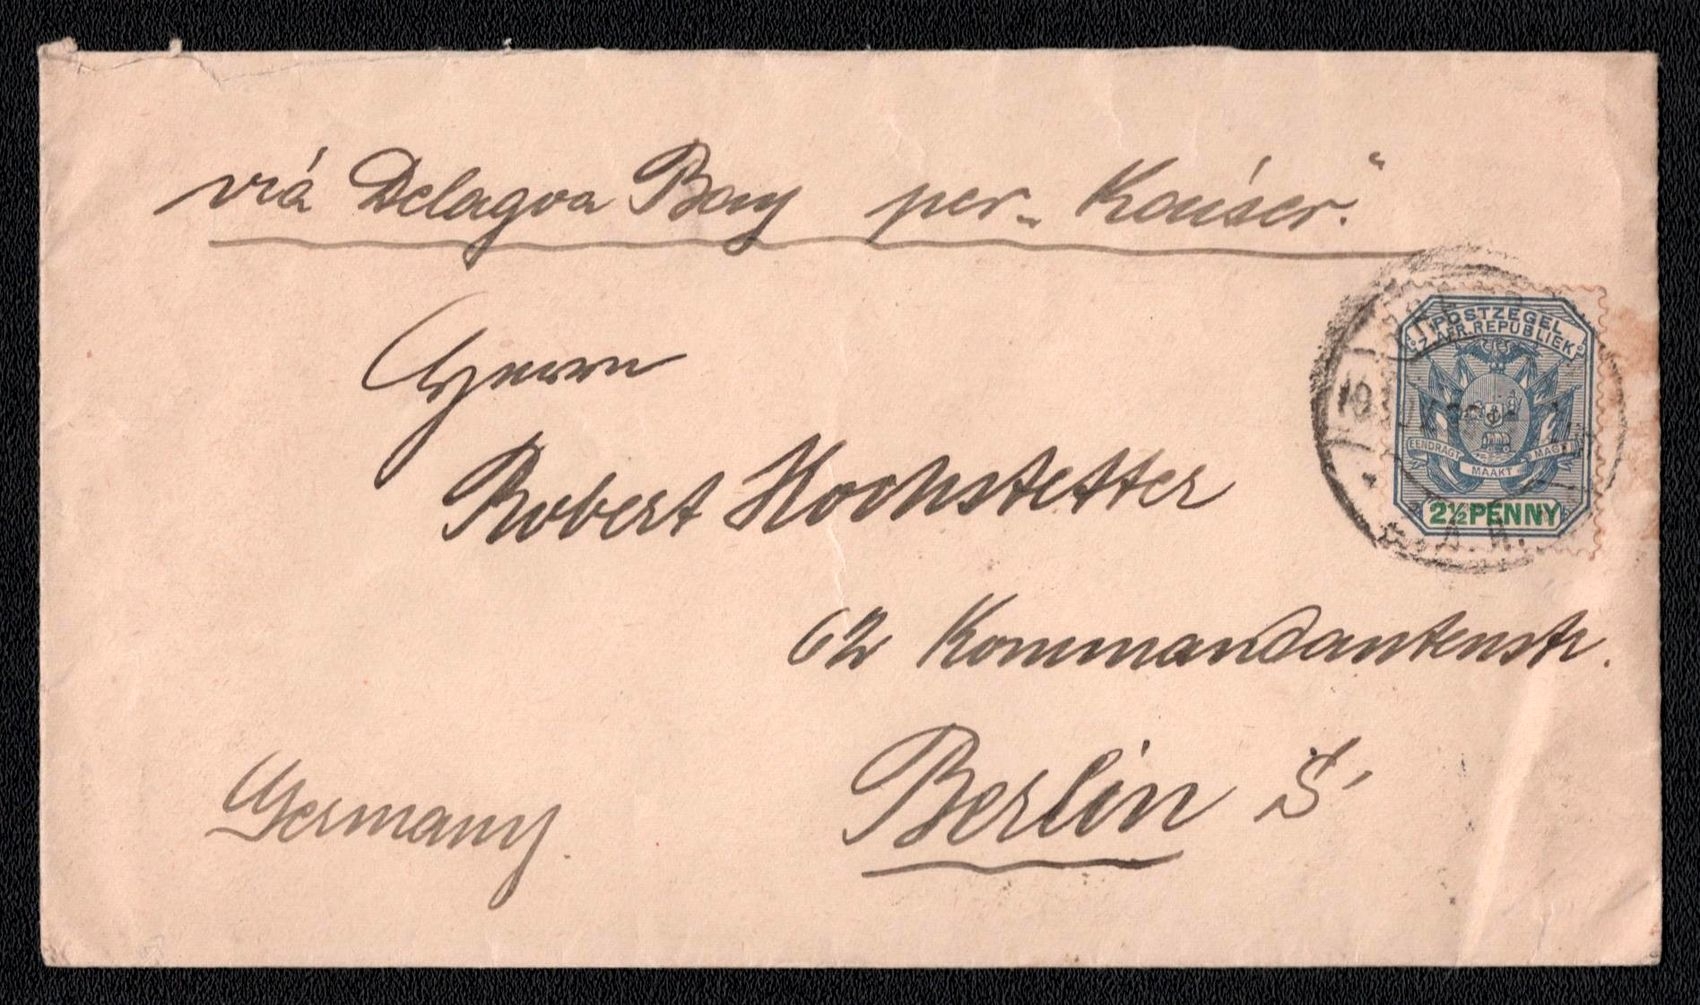 viá Delagoa Bay per „Kaiser."
Herrn
Robert Hochstetter
62 Kommandantenstr.
Berlin S
Germany.
POSTZEGEL
Z. AFR. REPUBLIEK
EENDRAGT MAAKT MAGT
2½ PENNY